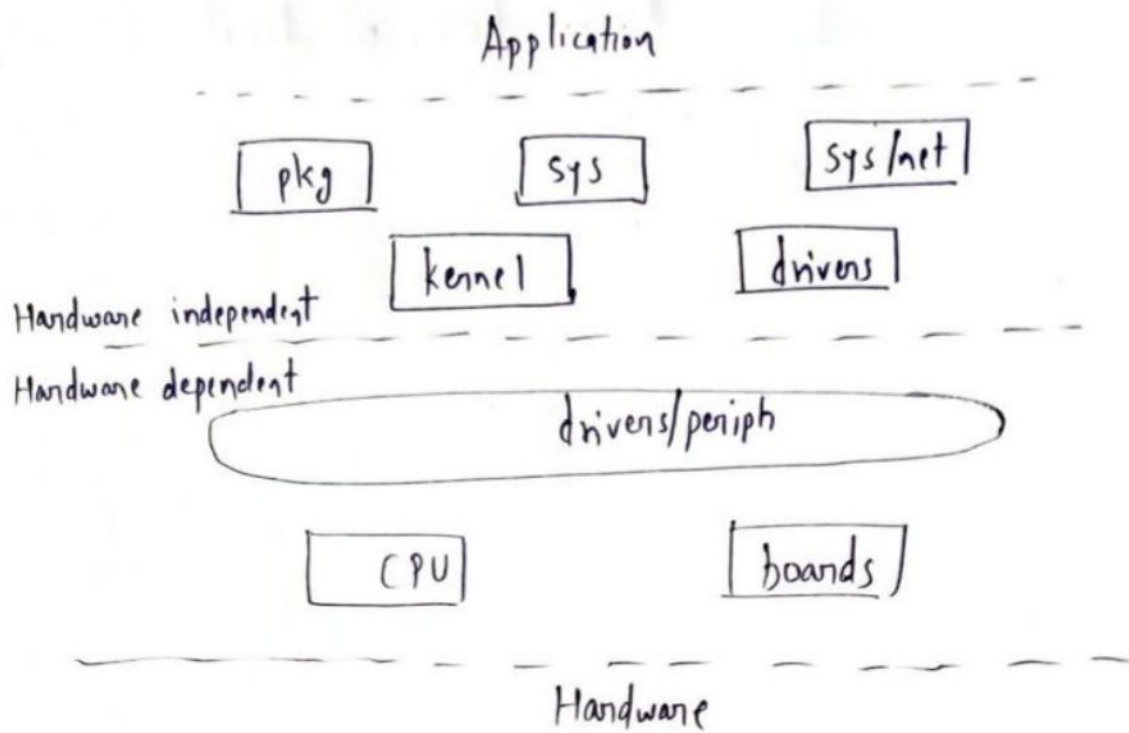 Application
pkg
sys
sys/net
kernel
drivers
Hardware independent
Hardware dependent
drivers/periph
CPU
boards
Hardware